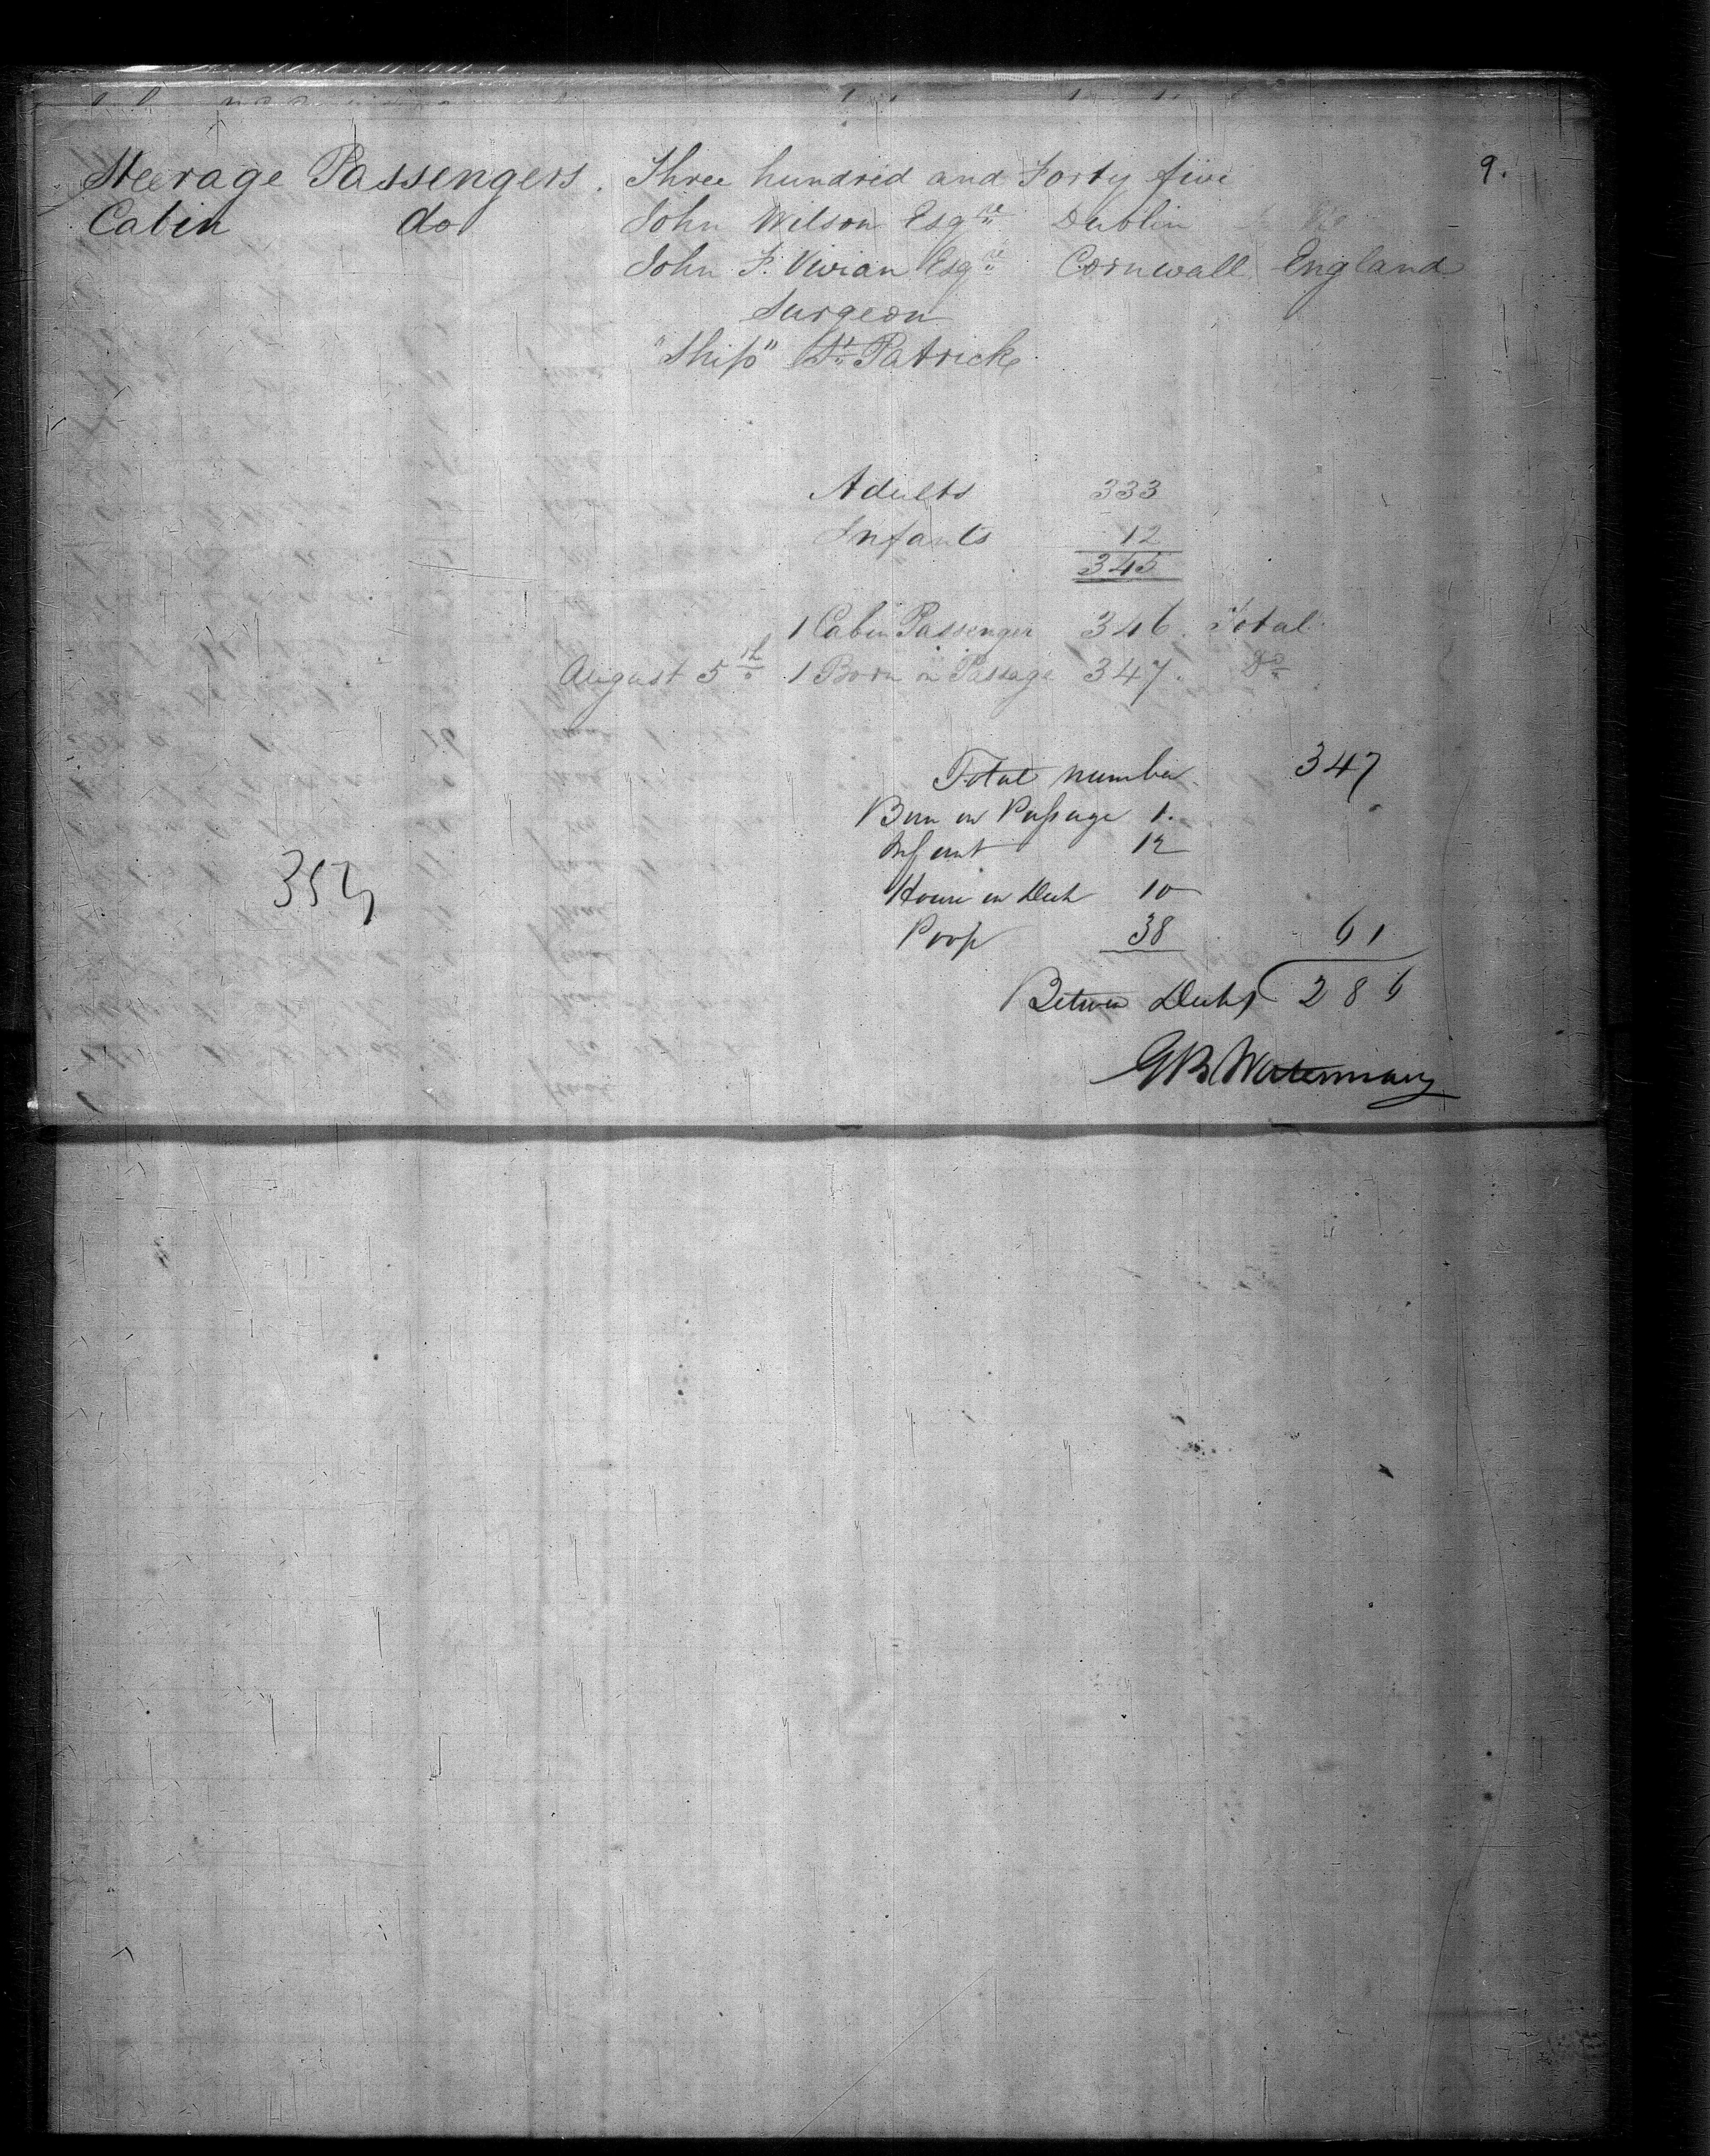 9.
Steerage Passengers. Three hundred and Forty five
Cabin do John Wilson Esqre Dublin
John F. Vivian Esqre Cornwall England
Surgeon
"Ship" St Patrick
Adults 333
Infants 12
345
1 Cabin Passenger 346. Total
August 5th 1 Born on Passage 347. Do
Total number 347
Born on Passage 1.
Infant 12
House on Deck 10
Poop 38 61
Between Decks 286
357
G B Waterman